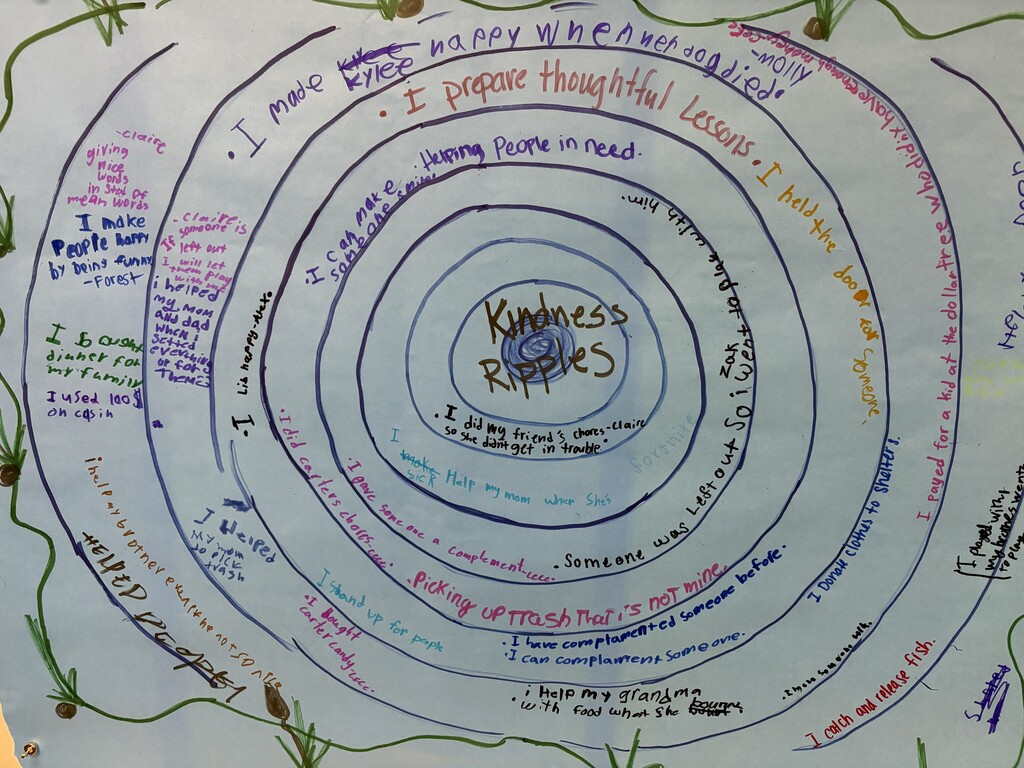 Kindness
Ripples
. I did my friend's chores-claire
so she didnt get in trouble.
I
sick Help my mom when she's
. Someone was Left out So i went to play with him.
Zak
. I gave someone a complement-cece
. Helping People in need.
. I can make
someone smile.
. Picking up trash That is not mine.
. I did carters chors-cece.
. I prepare thoughtful Lessons.
. I held the door for someone.
. I have complamented someone before.
. I can complament someone.
I Stand up for people
. I
. I made Kylee happy when her dog died.
-Molly
I Donate clothes to shelters.
. i Help my grandma
with food when she
. I bought
carter candy cece.
I Helped
My mom
trash
- claire.
If someone is
left out
I will let
them play
with me
i helped
my mom
and dad
when I
setted
everything
up for
Them
I payed for a kid at the dollar tree who didn't have enough
I catch and release fish.
-claire
giving
nice
words
in stad of
mean words
I make
People happy
by being funny
-Forest
I bought
dinner for
my family
I used 100$
on cash
i help my brother even if he not so nice
HELPED PEOPLE
I played with